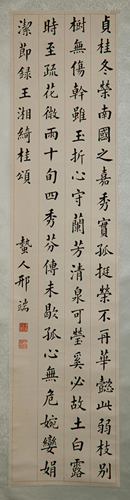 貞桂冬榮南國之嘉秀實孤挺榮不再華懿此弱枝別
樹無傷幹雖玉折心守蘭芳清泉可瑩奚必故土白露
時至疏花微雨十旬四秀芬傳未歇孤心無危婉孌娟
潔節録王湘綺桂頌
螯人邢端